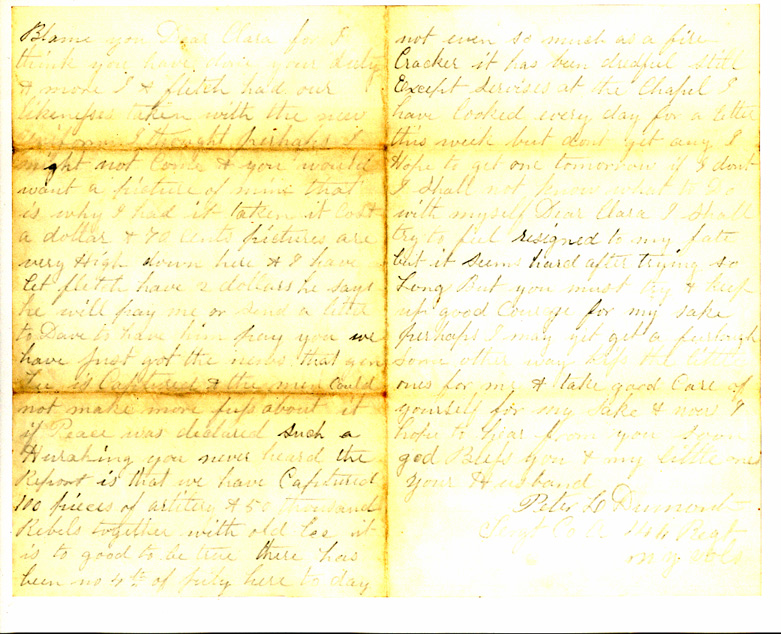 Blame you Dear Clara for I
think you have done your duty
& more I & fletch had our
likenesses taken with the new
I thought perhaps I
might not Come & you would
want a picture of mine that
is why I had it taken it Cost
a dollar & 70 Cents pictures are
very High down here & I have
let fletch have 2 dollars he says
he will pay me or send a letter
to Dave to have him pay you we
have Just got the news that gen
Lee is Captured & the men Could
not make more fuss about it
if Peace was declared such a
Hurrahing you never heard the
Report is that we have Captured
100 pieces of artilery & 50 thousand
Rebels together with old Lee it
is to good to be true there has
been no 4th of July here to day
not even so much as a fire
Cracker it has been dredful still
Except servises at the Chapel I
have looked every day for a letter
this week but dont get any I
Hope to get one tomorrow if I dont
I shall not know what to Do
with myself Dear Clara I shall
try to feel resigned to my fate
but it seems hard after trying so
Long But you must try & keep
up good Courage for my sake
perhaps I may get get a furlough
some other way kiss the little
ones for me & take good Care of
yourself for my sake & now I
hope to hear from you soon
god Bless you & my little ones
your Husband
Peter Dumond
Sergt Co 144 Regt
N Y Vols